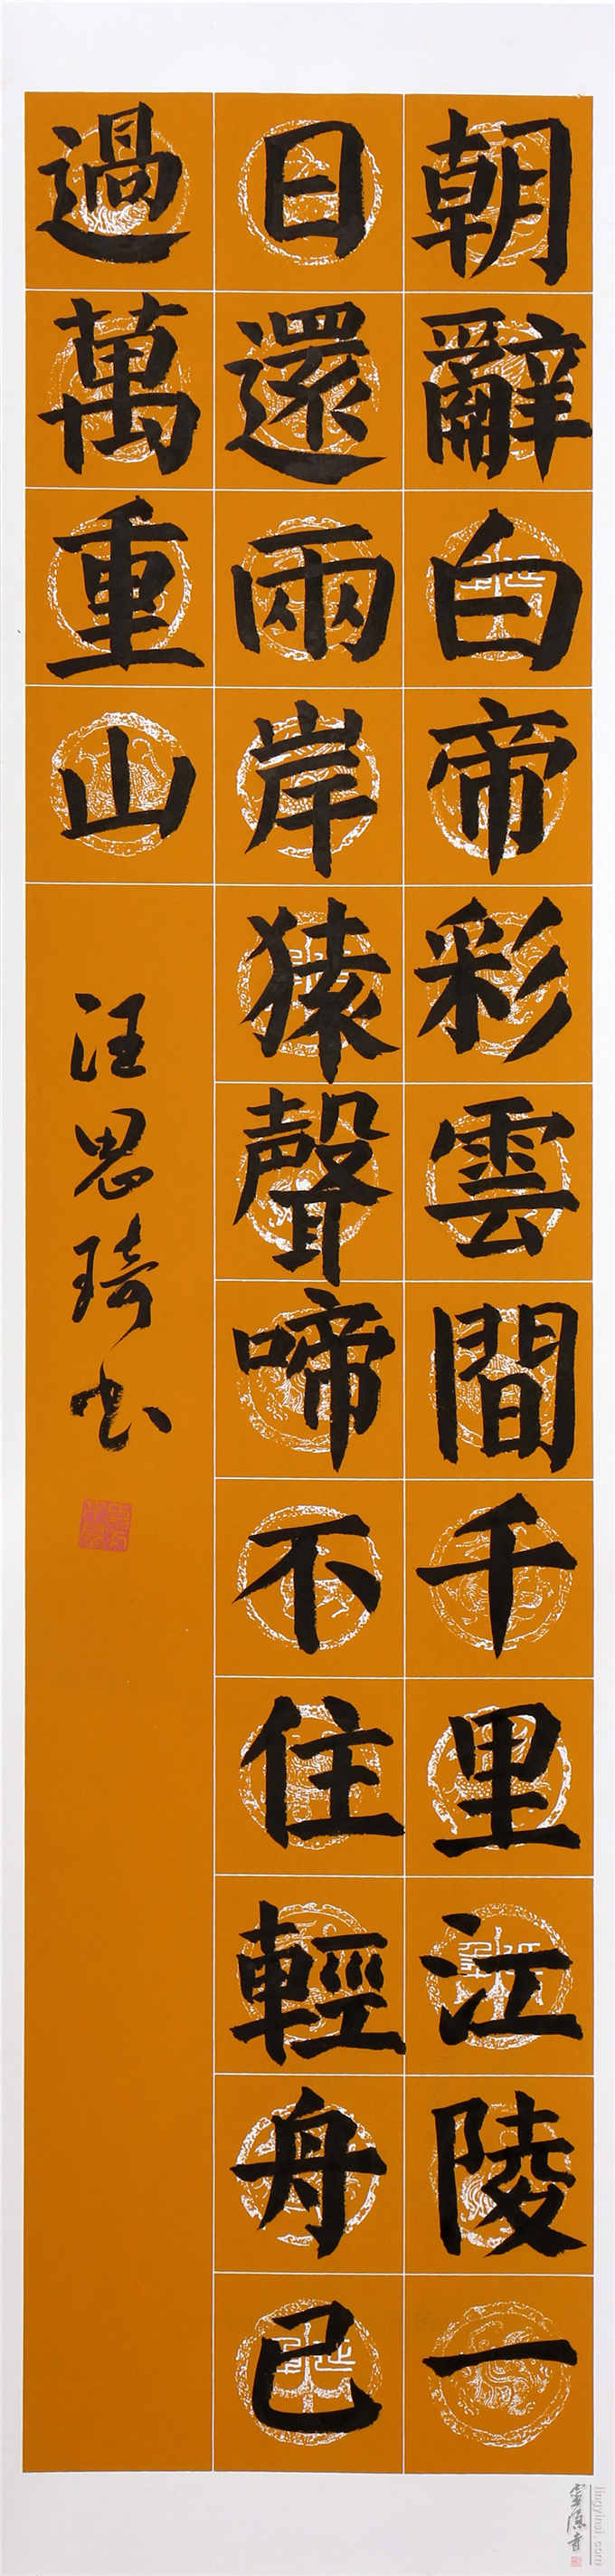 朝辭白帝彩雲間千里江陵一
日還兩岸猿聲啼不住輕舟已
過萬重山
汪思琦书
lingyinsi.com